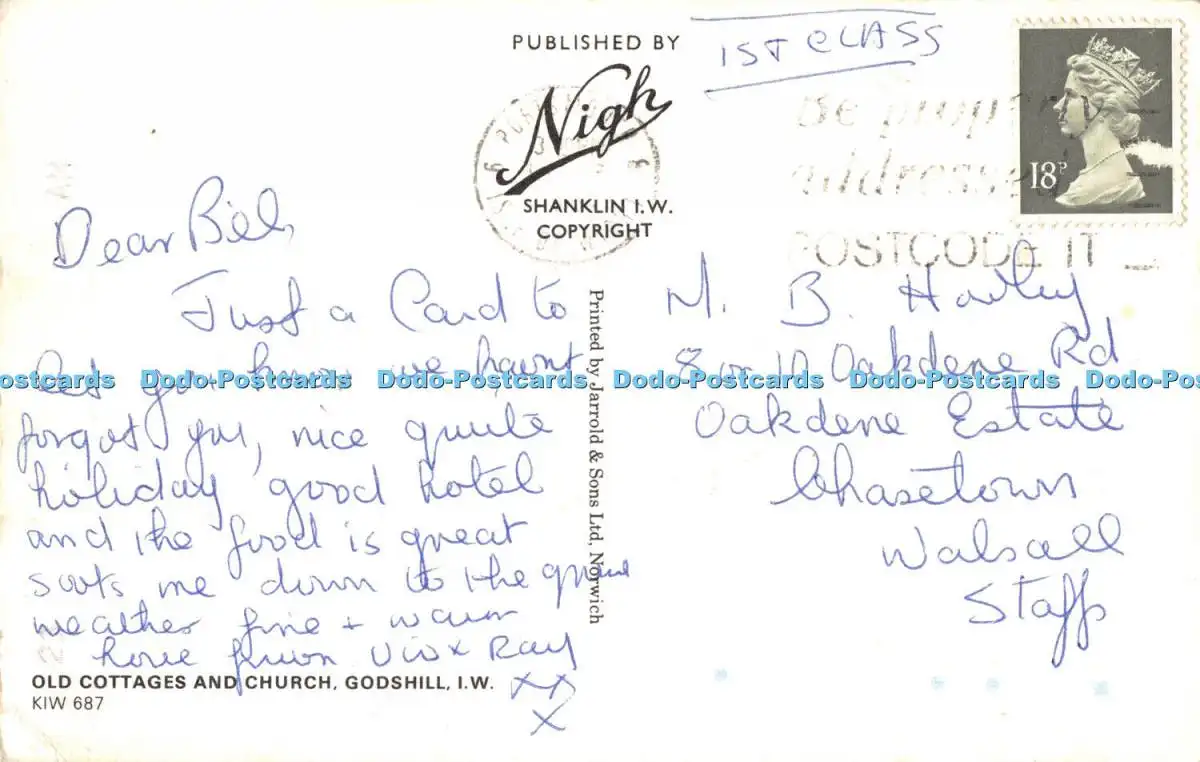 PUBLISHED BY
Nigh
SHANKLIN I.W.
COPYRIGHT
1ST CLASS
Be
addresse
POSTCODE IT
18P
Dear Bill,
Just a Card to
let you know we havnt
forgot you, nice quite
holiday good hotel
and the food is great
suits me down to the
weather fine + warm
love from Vi x Ray
xx
x
OLD COTTAGES AND CHURCH, GODSHILL, I.W.
KIW 687
Printed by Jarrold & Sons Ltd, Norwich
M. B.
8 Oakdene Rd
Oakdene Estate
Chasetown
Walsall
Staffs
Dodo-Postcards Dodo-Postcards Dodo-Postcards Dodo-Postcards